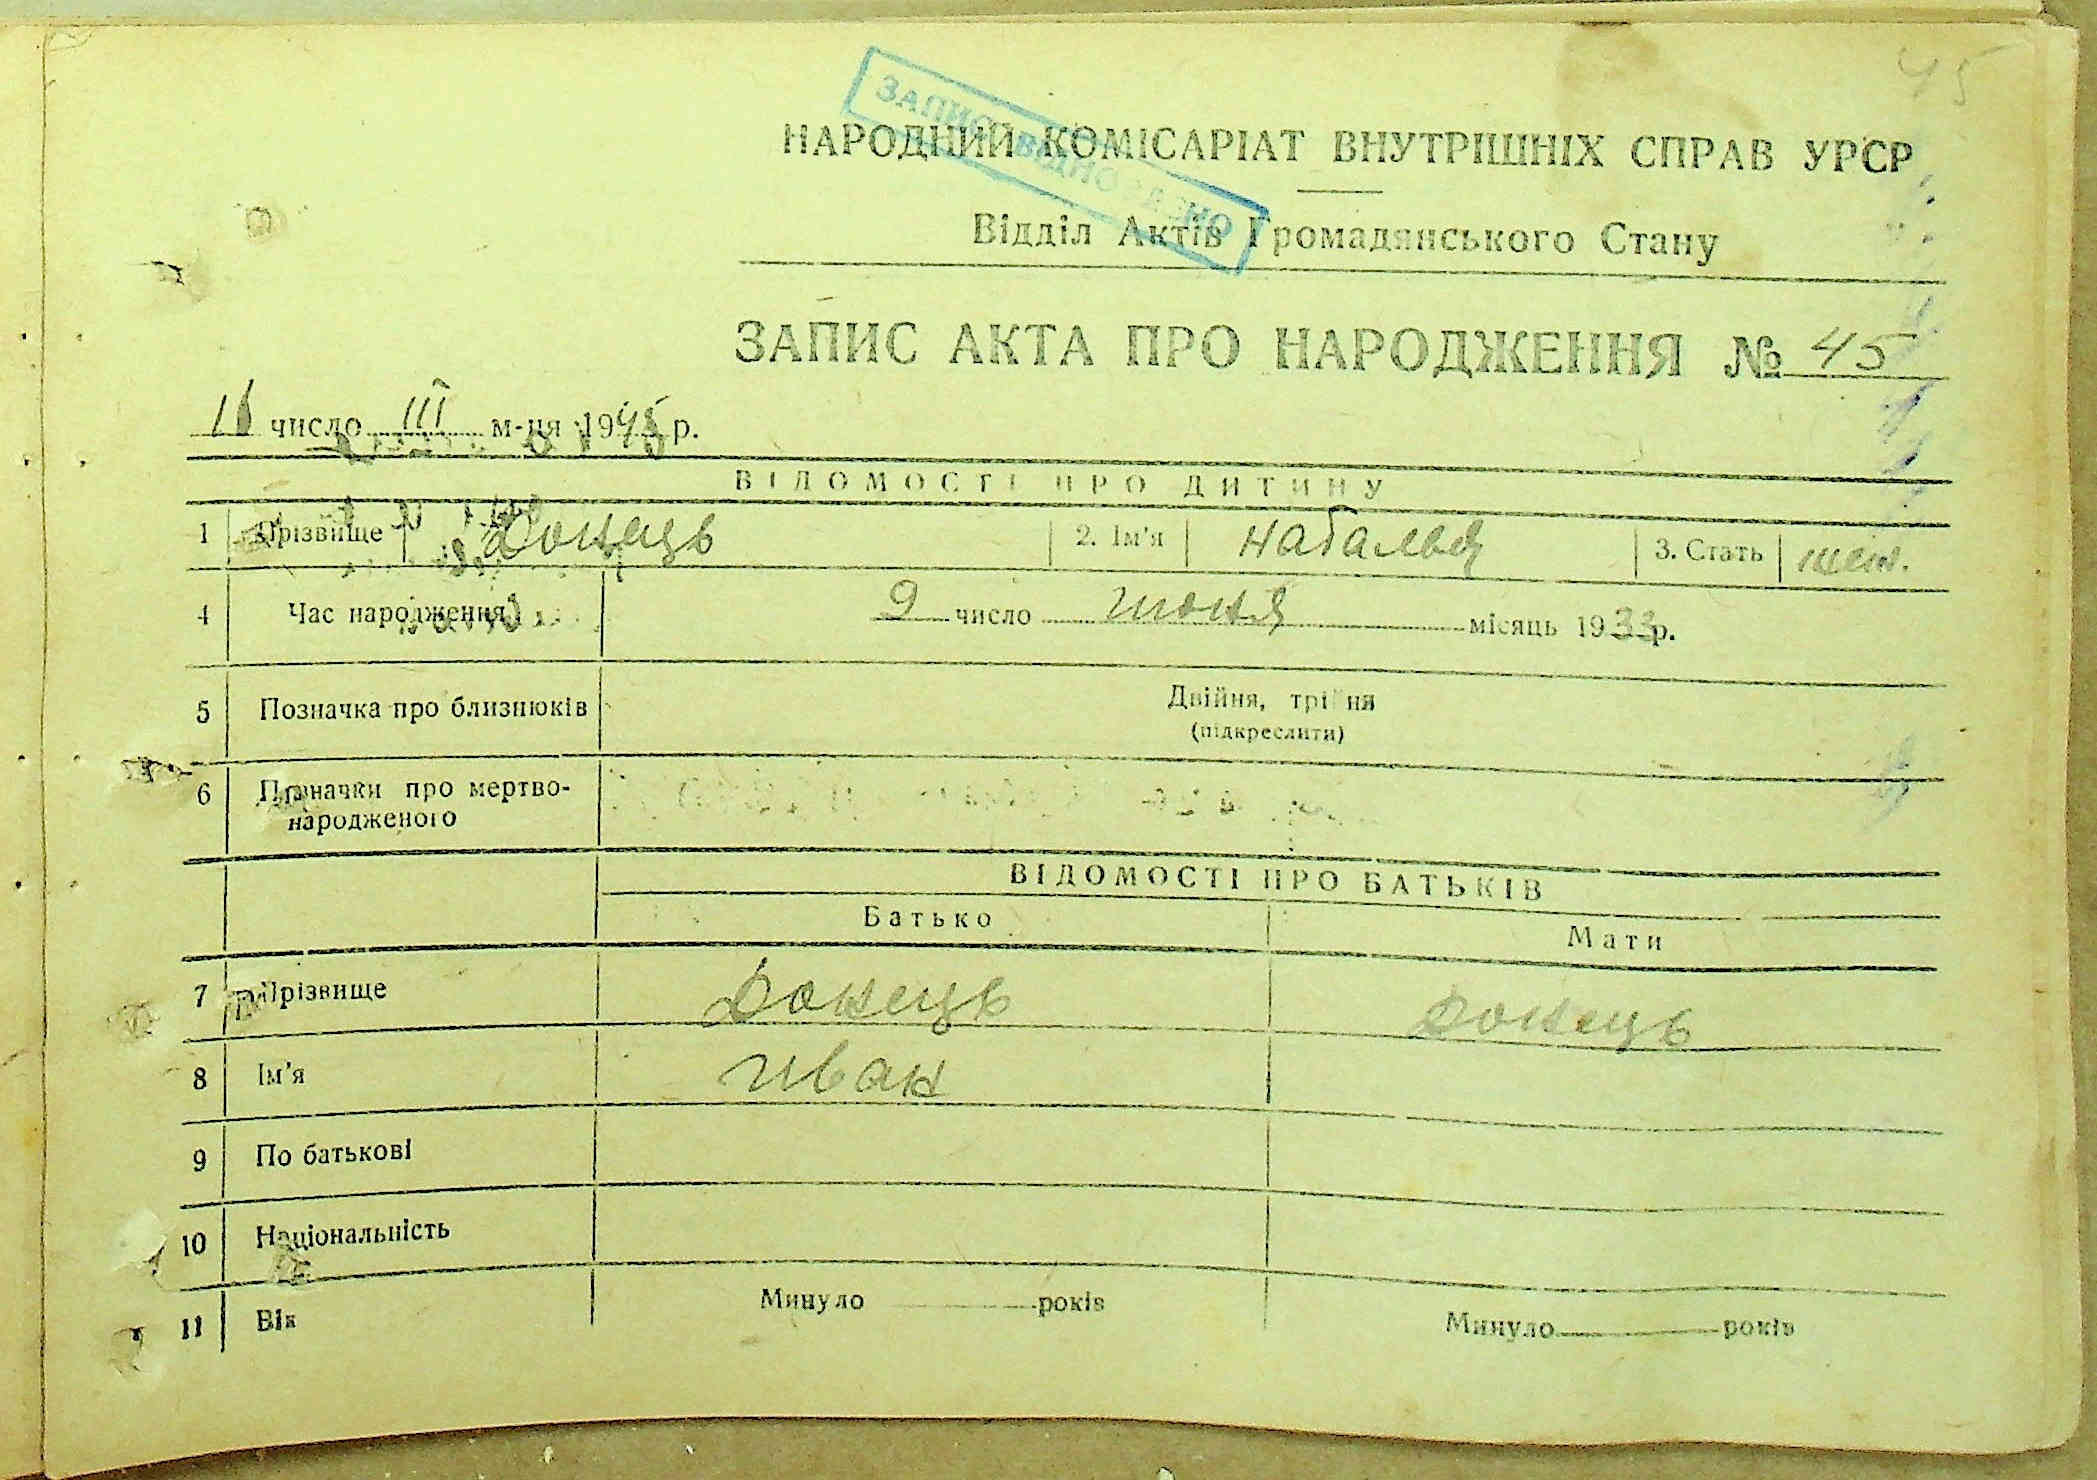 45
ЗАПИС ВІДНОВЛЕНО
НАРОДНИЙ КОМІСАРІАТ ВНУТРІШНІХ СПРАВ УРСР
Відділ Актів Громадянського Стану
ЗАПИС АКТА ПРО НАРОДЖЕННЯ № 45
число III м-ця 1945 р.
ВІДОМОСТІ ПРО ДИТИНУ
1 Прізвище Донець 2. Ім'я Наталья 3. Стать жен.
4 Час народження 9 число июня місяць 1933 р.
5 Позначка про близнюків Двійня, трійня
(підкреслити)
6 Позначки про мертво-
народженого
ВІДОМОСТІ ПРО БАТЬКІВ
Батько Мати
7 Прізвище Донець Донець
8 Ім'я Иван
9 По батькові
10 Національність
11 Вік Минуло років Минуло років